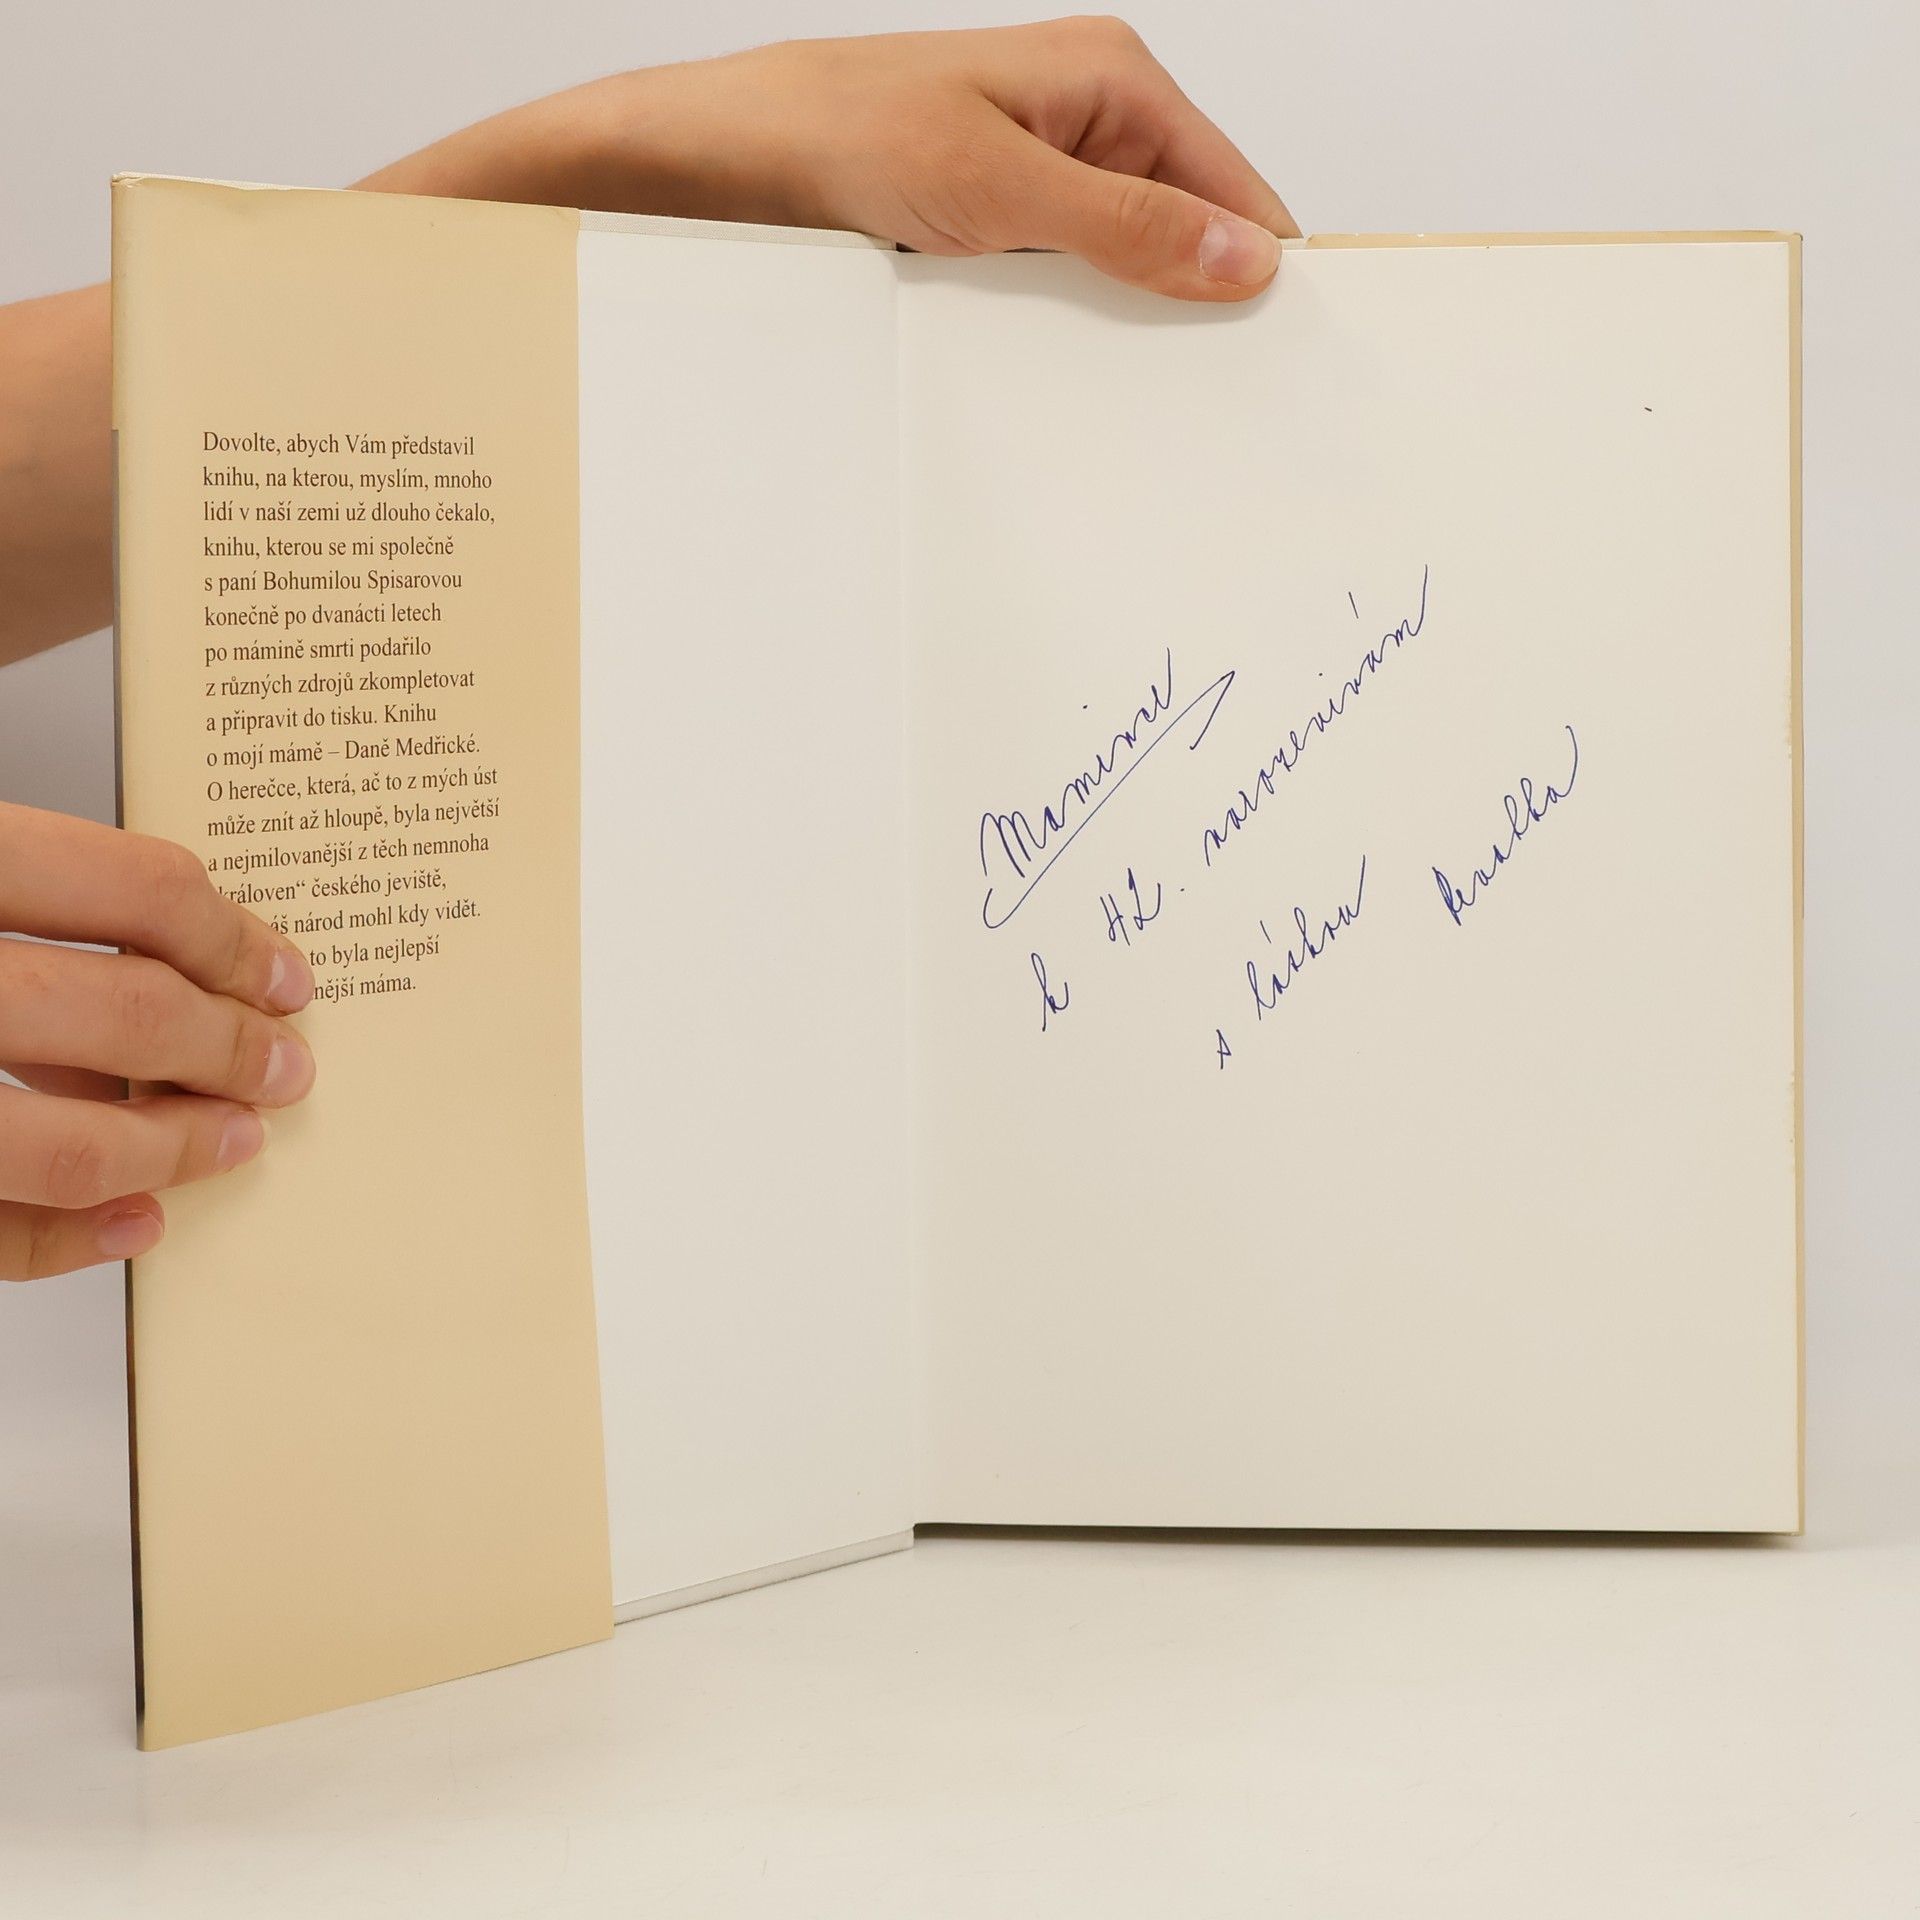 Dovolte, abych Vám představil
knihu, na kterou, myslím, mnoho
lidí v naší zemi už dlouho čekalo,
knihu, kterou se mi společně
s paní Bohumilou Spisarovou
konečně po dvanácti letech
po mámině smrti podařilo
z různých zdrojů zkompletovat
a připravit do tisku. Knihu
o mojí mámě – Daně Medřické.
O herečce, která, ač to z mých úst
může znít až hloupě, byla největší
a nejmilovanější z těch nemnoha
královen“ českého jeviště,
národ mohl kdy vidět.
to byla nejlepší
máma.
Mamince
k 42. narozeninám
s láskou